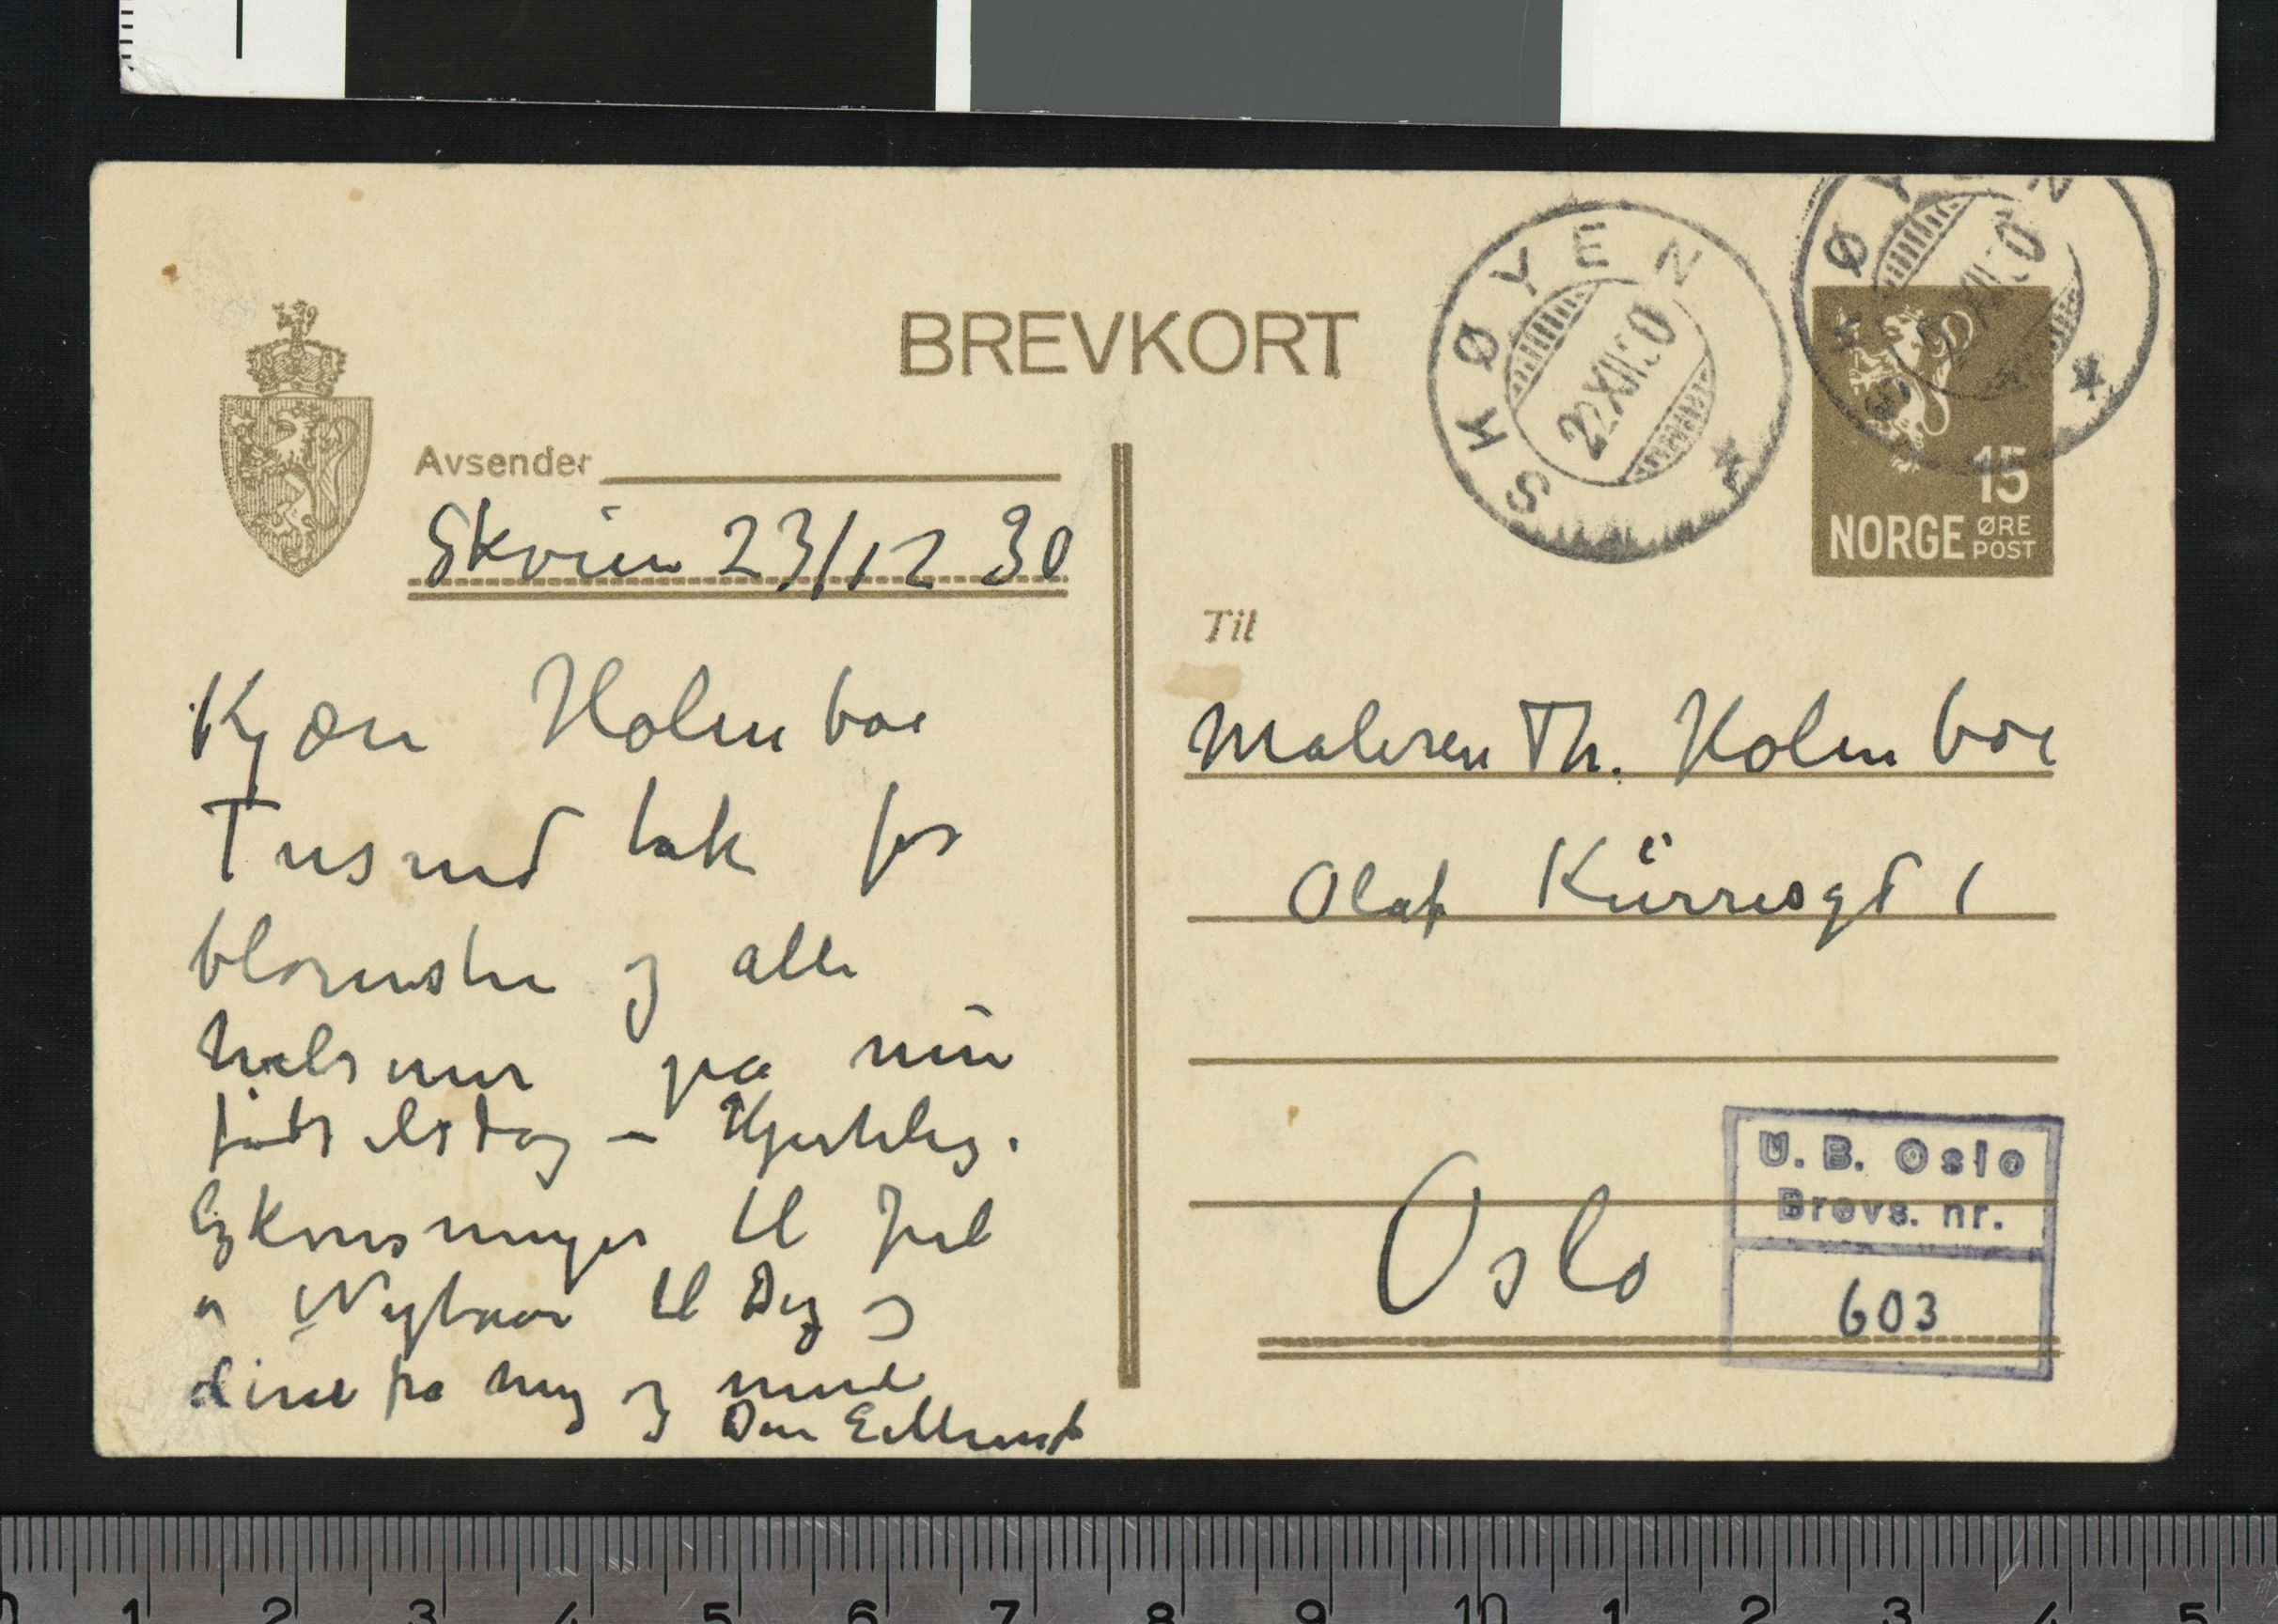 BREVKORT
SKØYEN
22XII30
ØYEN
Avsender
Skøien 23/12 30
Kjære Holmboe
Tusend tak for
blomster og alle
hilsener på min
fødselsdag – Hjertelig.
lykønsninger til Jul
o Nytaar til Dig og
dine fra mig og mine
Din
15
NORGE ØRE
POST
Til
Maleren Th. Holmboe
Olaf Kürresgt 1
Oslo
U. B. Oslo
Brevs. nr.
603
0 1 2 3 4 5 6 7 8 9 10 1 2 3 4 5